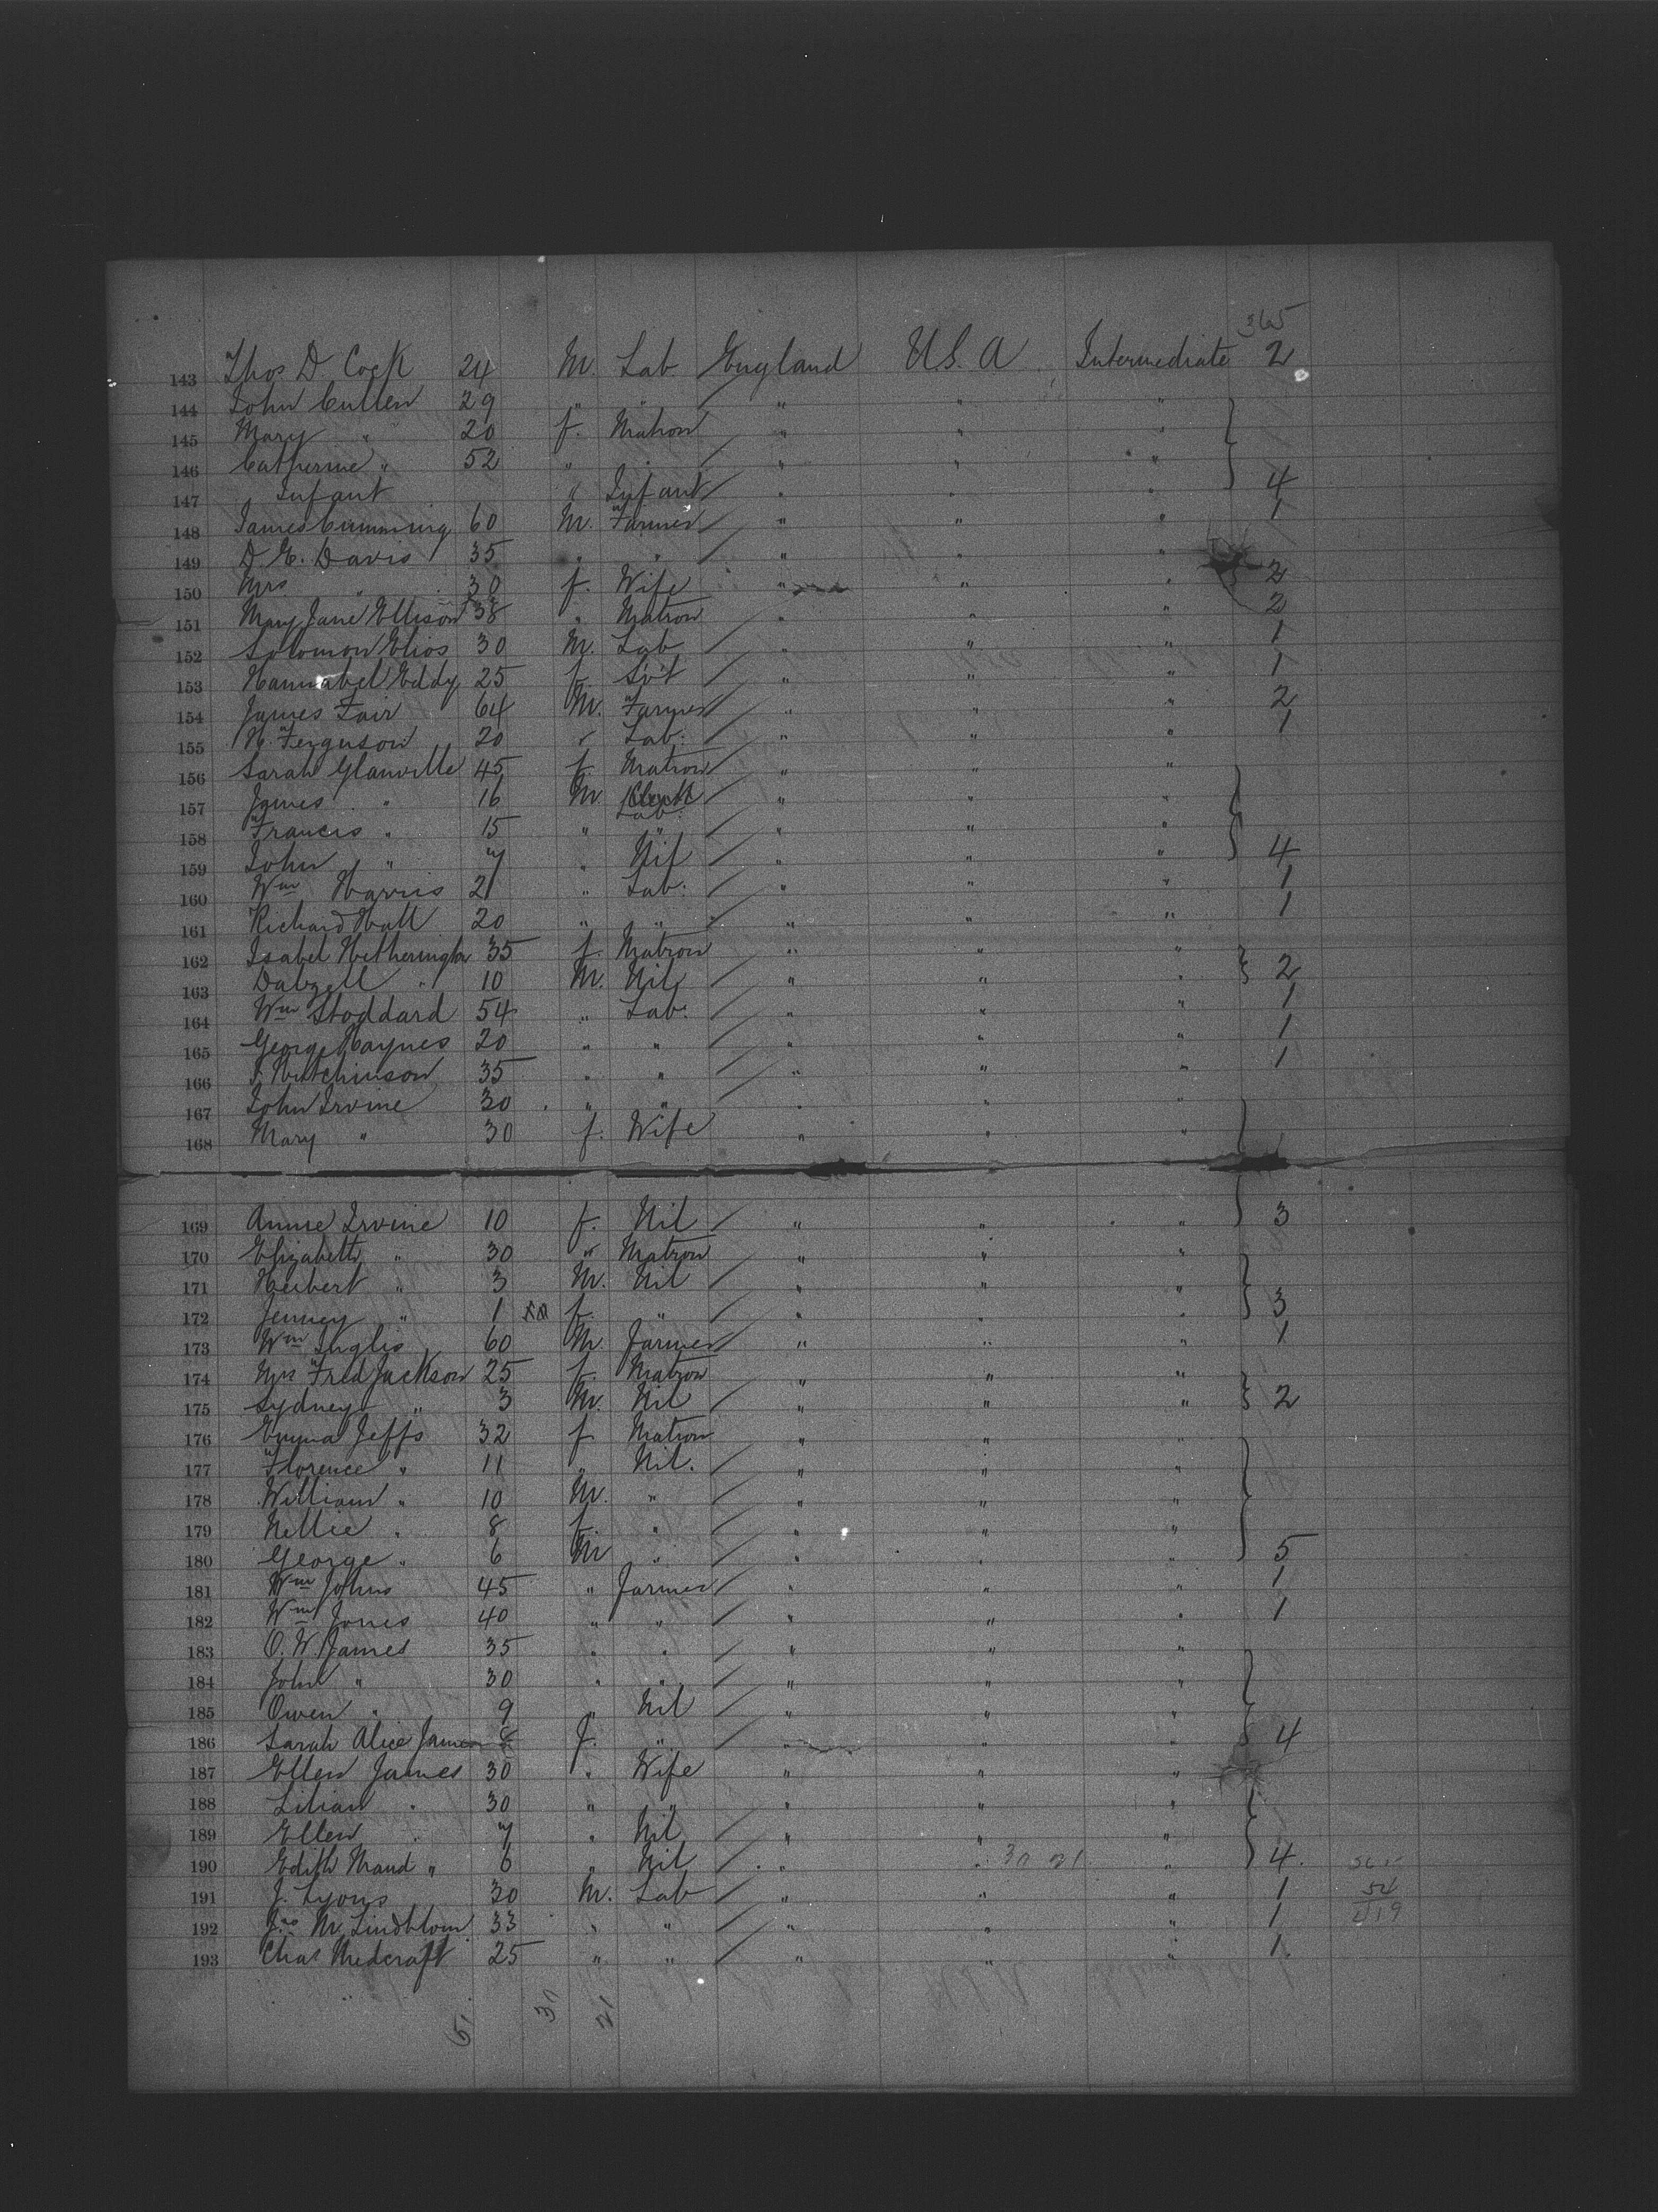 365
143 Thos D Cock 24 M. Lab. England U.S.A. Intermediate 2
144 John Cullen 29 " " " " "
145 Mary " 20 f. Matron " " "
146 Catherine " 52 " " " " "
147 Infant " Infant " " " 4
148 James Cumming 60 M. Farmer " " " 1
149 D. E. Davis 35 " " " " "
150 Mrs " 30 f. Wife " " " 2
151 Mary Jane Ellison 38 " Matron " " " 2
152 Solomon Elios 30 M. Lab " " " 1
153 Hannabel Eddy 25 f. " " " 1
154 James Fair 64 M. Farmer " " " 2
155 H. Ferguson 20 " Lab. " " " 1
156 Sarah Glanville 45 f. Matron " " "
157 James " 16 M. Lab. " " "
158 Francis " 15 " " " " "
159 John " 7 " Nil " " " 4
160 Wm Harris 21 " Lab. " " " 1
161 Richard Hall 20 " " " " " 1
162 Isabel Hetherington 35 f. Matron " " "
163 Dalzell " 10 M. Nil " " " 2
164 Wm Stoddard 54 " Lab. " " " 1
165 George Haynes 20 " " " " " 1
166 Hutchinson 35 " " " " " 1
167 John Irvine 30 " " " " "
168 Mary " 30 f. Wife " " "
169 Annie Irvine 10 f. Nil " " " 3
170 Elizabeth " 30 " Matron " " "
171 Herbert " 3 M. Nil " " "
172 Jenney " 1 f. " " " " 3
173 Wm Inglis 60 M. Farmer " " " 1
174 Mrs Fred Jackson 25 f. Matron " " "
175 Sydney " 3 M. Nil " " " 2
176 Emma Jeffs 32 f Matron " " "
177 Florence " 11 " Nil. " " "
178 William " 10 M. " " " "
179 Nellie " 8 f. " " " "
180 George " 6 M " " " " 5
181 Wm Johns 45 " Farmer " " " 1
182 Wm Jones 40 " " " " " 1
183 O. W. James 35 " " " " "
184 John " 30 " " " " "
185 Owen " 9 " Nil " " "
186 Sarah Alice James 8 f. " " " " 4
187 Ellen James 30 " Wife " " "
188 Lilian " 30 " " " " "
189 Ellen " 7 " Nil " " "
190 Edith Maud " 6 " Nil " " 30 21 " 4.
191 J. Lyons 30 M. Lab " " " 1 54
192 Jno M. Lindblom 33 " " " " " 1 419
193 Chas Medcraft 25 " " " " " 1.